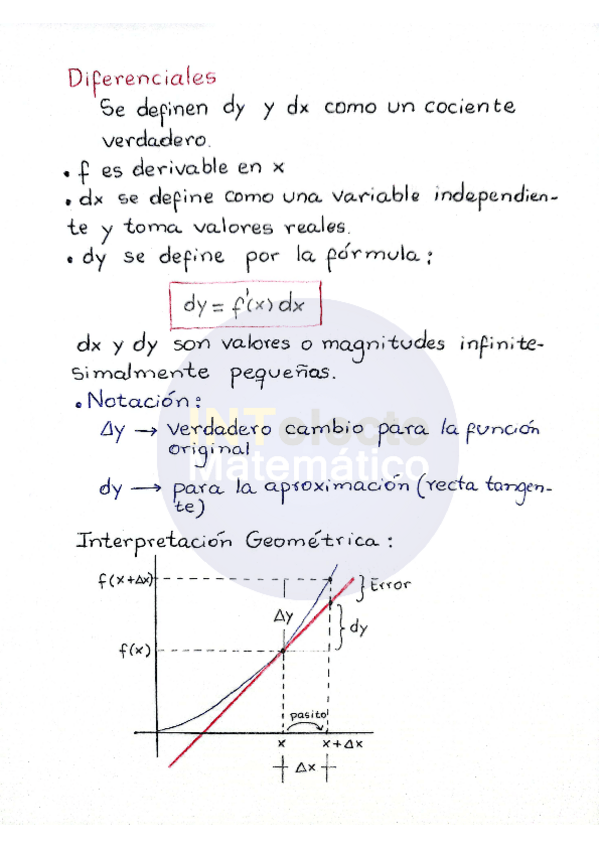 Diferenciales
Se definen dy y dx como un cociente
verdadero.
• f es derivable en x
• dx se define como una variable independien-
te y toma valores reales.
• dy se define por la fórmula:
dy = f'(x) dx
dx y dy son valores o magnitudes infinite-
simalmente pequeñas.
• Notación:
Δy → verdadero cambio para la función
original
dy → para la aproximación (recta tangen-
te)
INTelecto
Matemático
Interpretación Geométrica:
f(x+Δx)
Error
Δy
dy
f(x)
pasito
x x+Δx
Δx